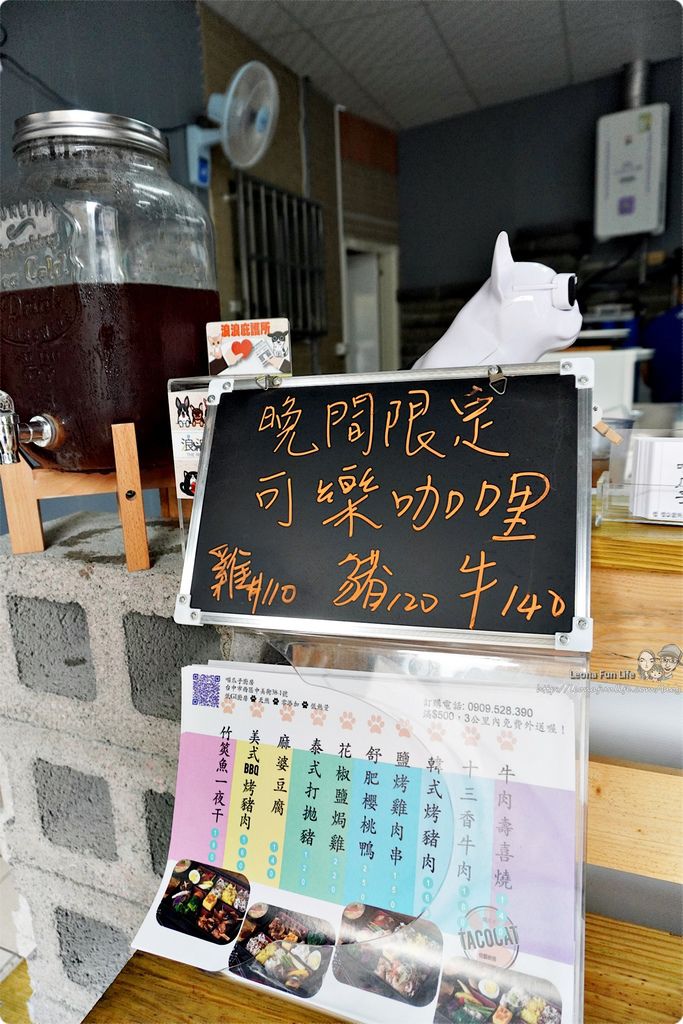 浪浪庇護所
晚間限定
可樂咖哩
雞110 豬120 牛140
Leona Fun Life
喵爪子廚房
訂購電話: 0909.528.390
滿$500，3公里內免費外送喔！
牛肉壽喜燒
十三香牛肉
韓式烤豬肉
鹽烤雞肉串
舒肥櫻桃鴨
花椒鹽焗雞
泰式打拋豬
麻婆豆腐
美式BBQ烤豬肉
竹筴魚一夜干
TACOCAT